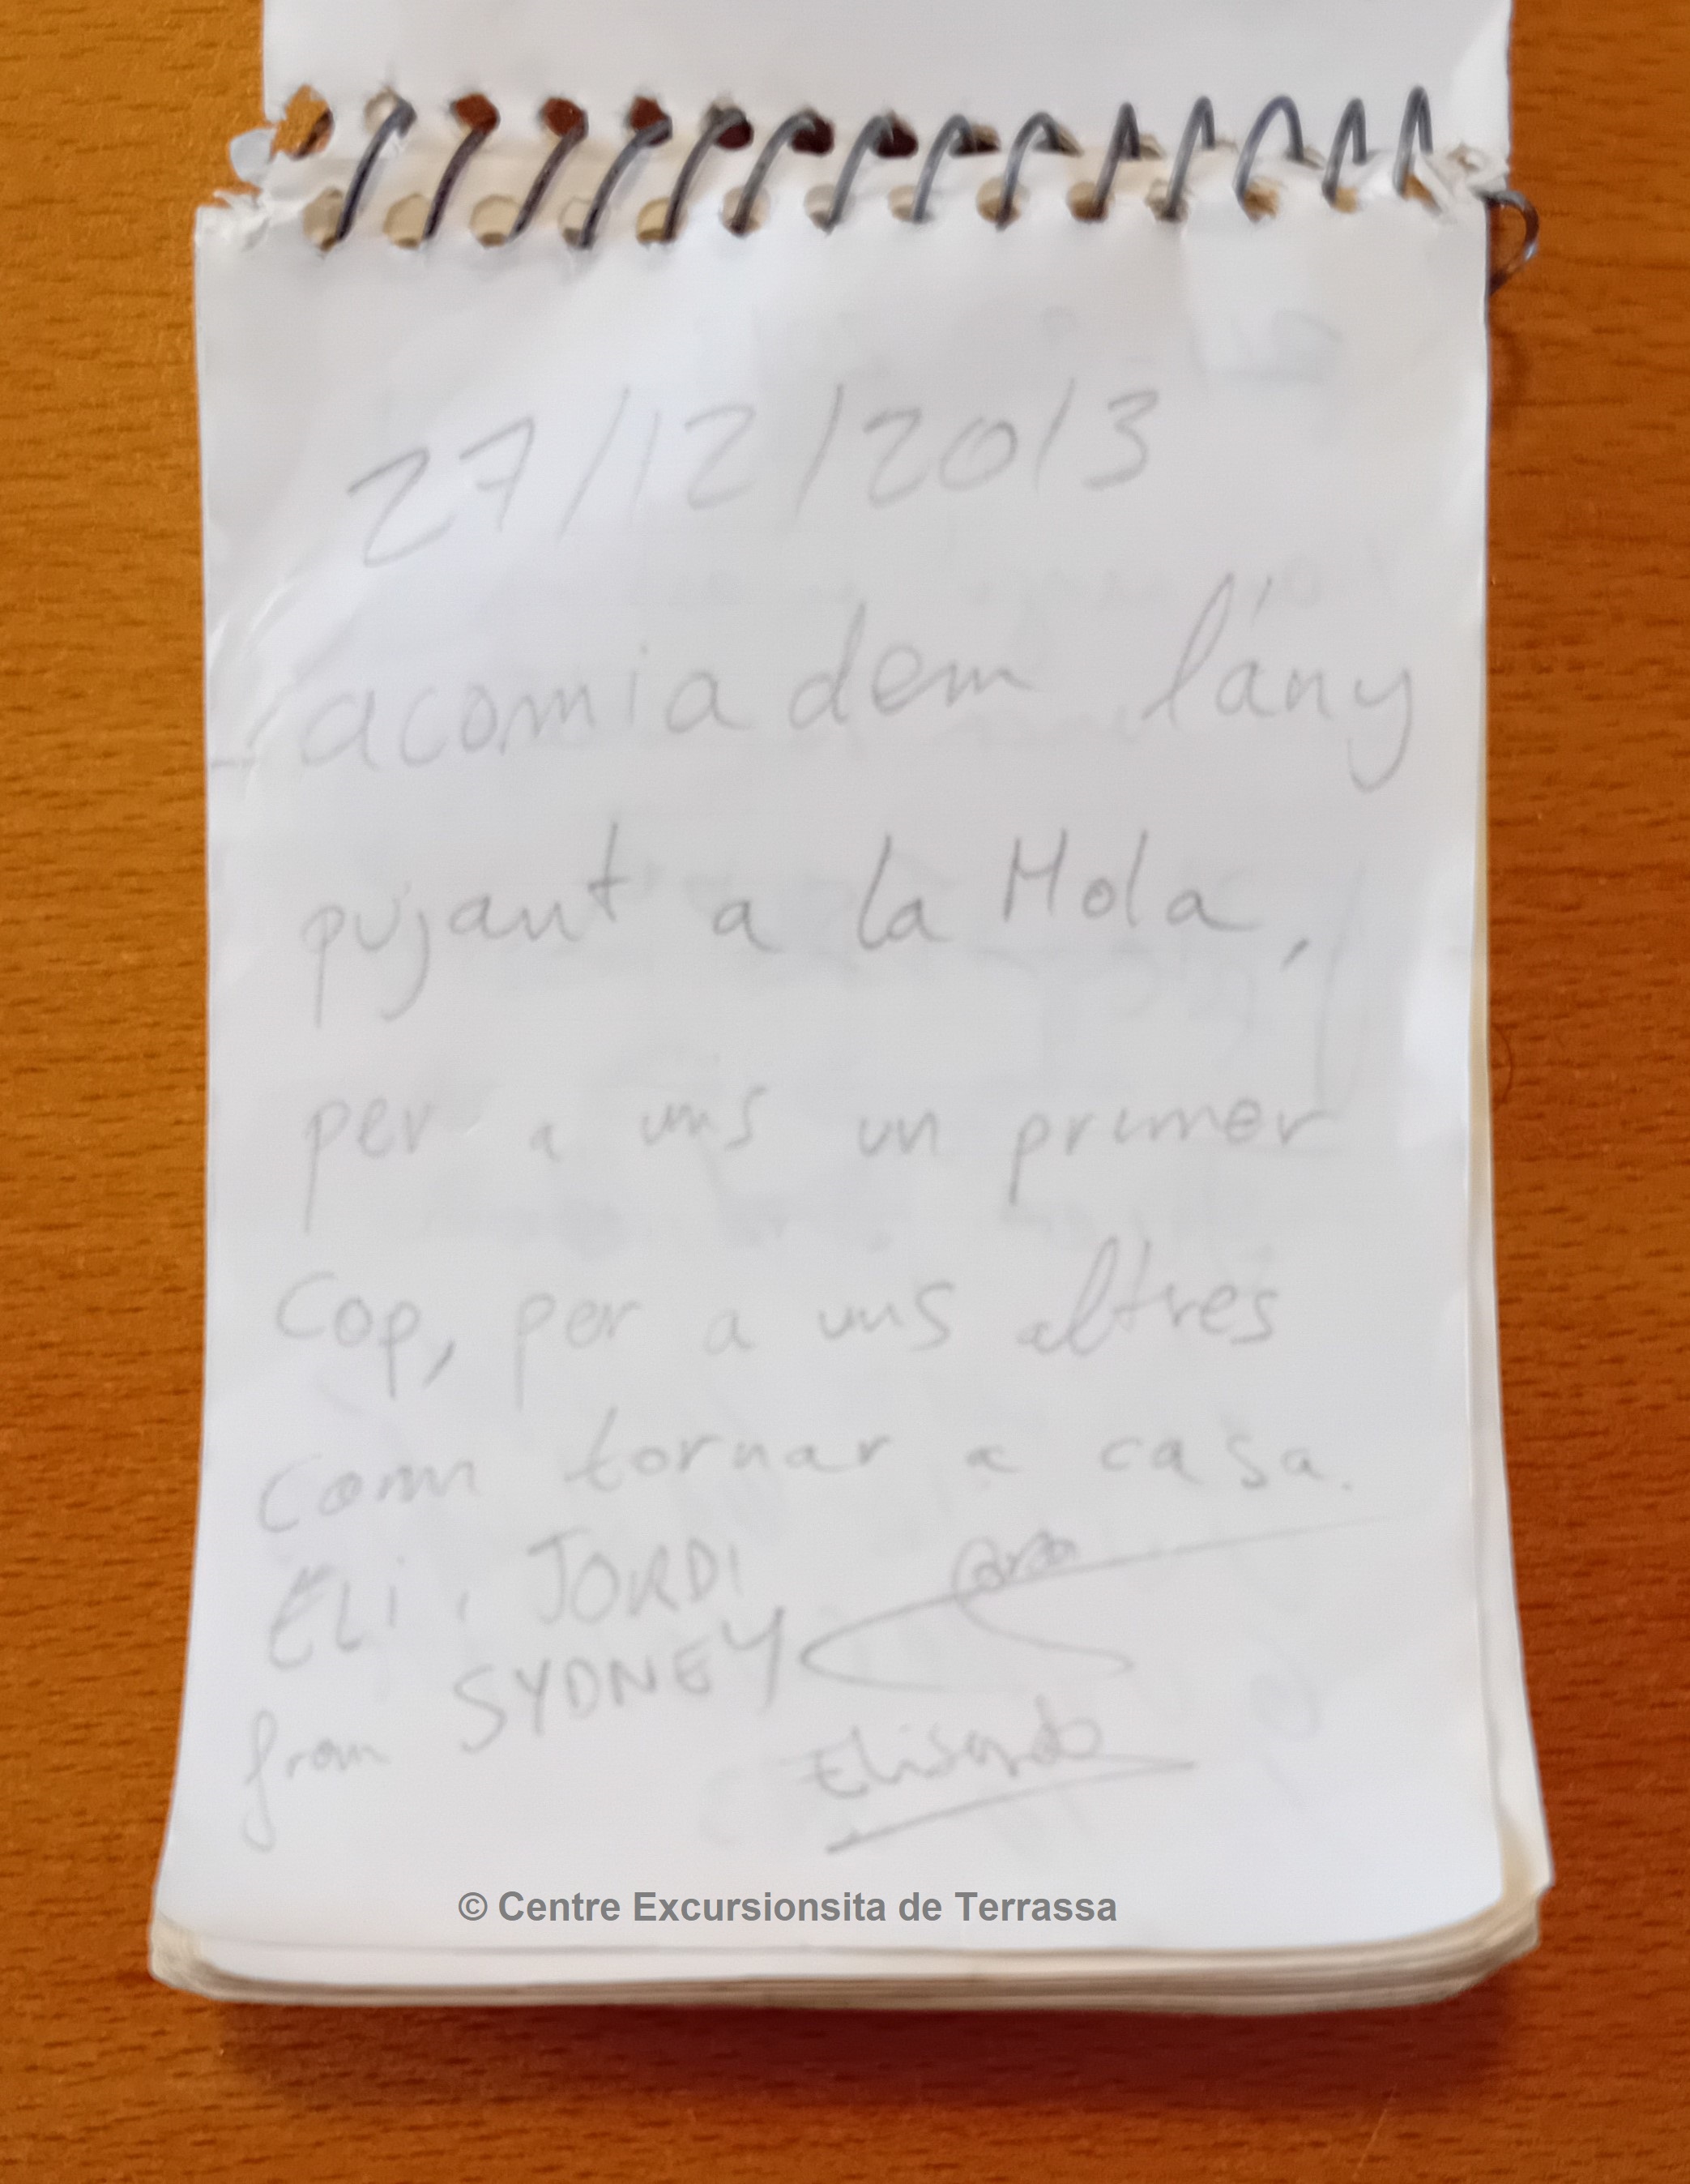 27/12/2013
acomiadem l'any
pujant a la Mola,
per a uns un primer
Cop, per a uns altres
com tornar a casa.
ELI, JORDI
from SYDNEY
Elisenda
© Centre Excursionsita de Terrassa